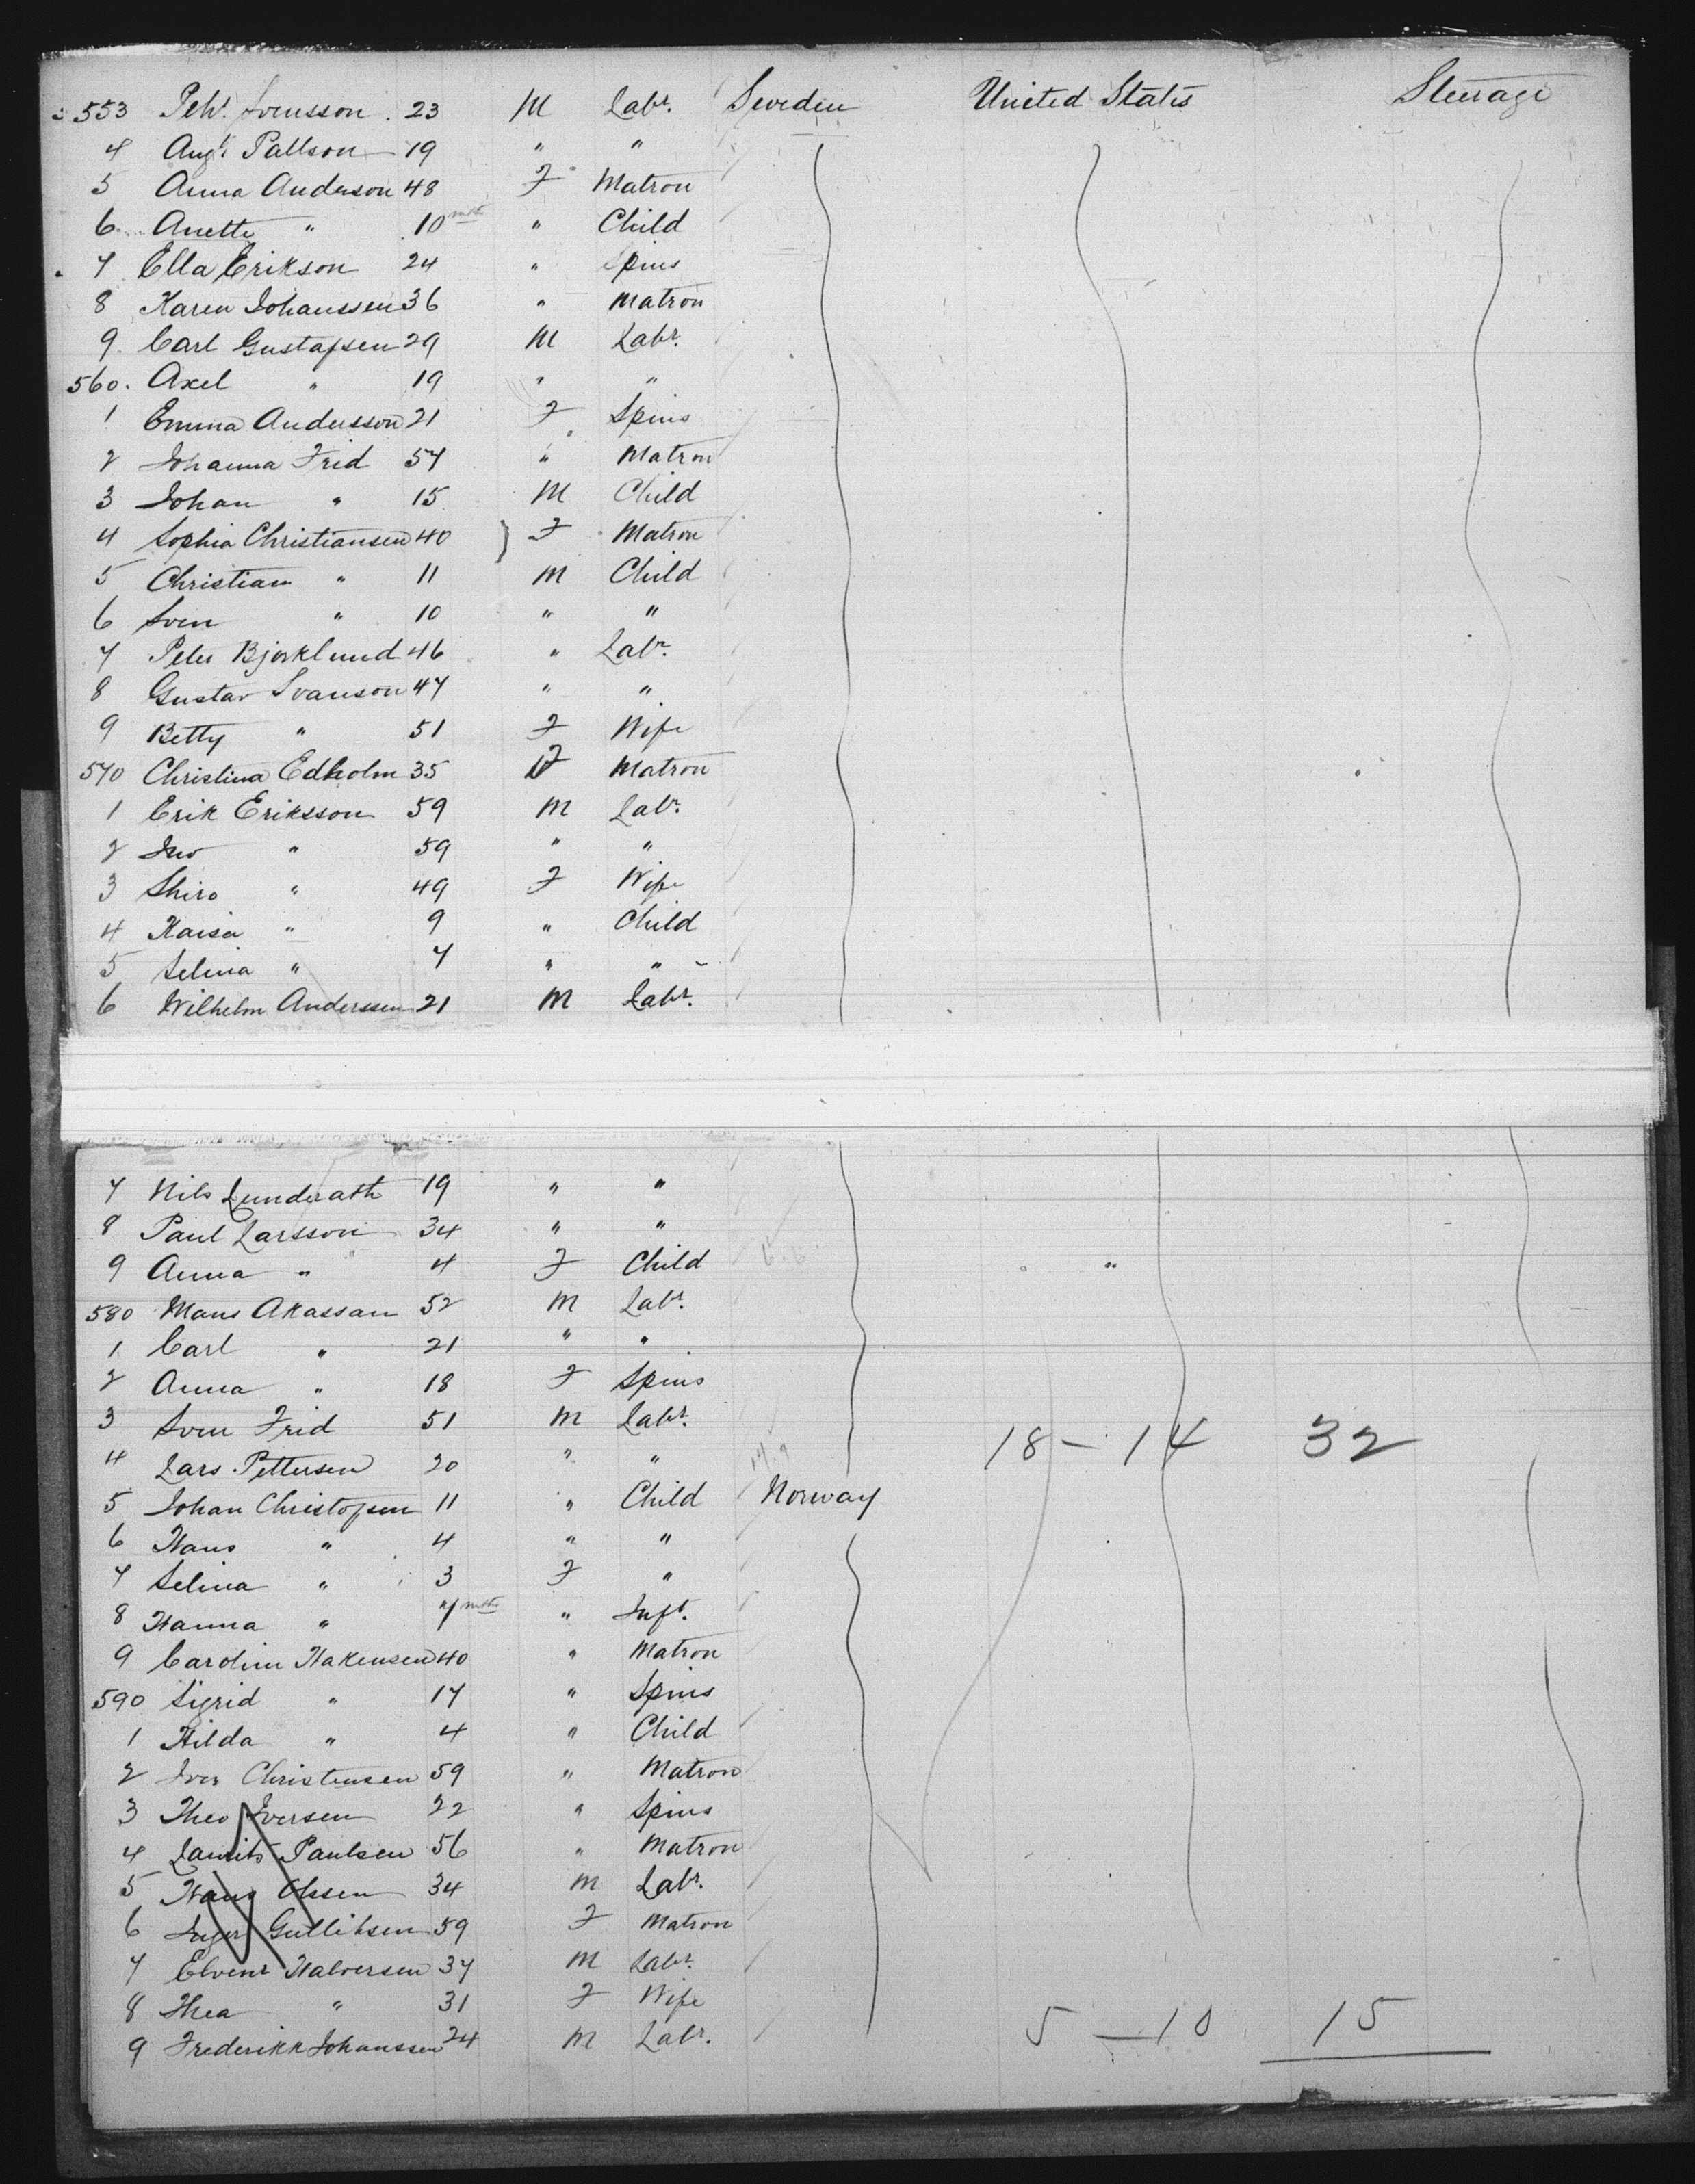 553 Pehr Svensson 23 M Labr. Sweden United States Steerage
4 Augt. Pallson 19 " "
5 Anna Anderson 48 F Matron
6 Anette " 10 mths " Child
7 Ella Erikson 24 " Spins
8 Karen Johanssen 36 " Matron
9 Carl Gustafsen 29 M Labr.
560. Axel " 19 " "
1 Emma Andersson 21 F Spins
2 Johanna Frid 57 " Matron
3 Johan " 15 M Child
4 Sophia Christiansen 40 } F Matron
5 Christian " 11 M Child
6 Sven " 10 " "
7 Peter Bjorklund 46 " Labr.
8 Gustav Svanson 47 " "
9 Betty " 51 F Wife
570 Christina Edholm 35 F Matron
1 Erik Eriksson 59 M Labr.
2 " 59 " "
3 " 49 F Wife
4 Kaisa " 9 " Child
5 Selina " 7 " "
6 Wilhelm Anderssen 21 M Labr.
7 Nils 19 " "
8 Paul Larsson 34 " "
9 Anna " 4 F Child
580 Mans Akassan 52 M Labr.
1 Carl " 21 " "
2 Anna " 18 F Spins
3 Sven Frid 51 M Labr. 18 - 14 32
4 Lars Pettersen 20 " "
5 Johan Christofsen 11 " Child Norway
6 Hans " 4 " "
7 Selina " 3 F "
8 Hanna " 7 mths " Inft.
9 Carolin Hakensen 40 " Matron
590 Sigrid " 17 " Spins
1 Hilda " 4 " Child
2 Iver Christensen 59 " Matron
3 Theo Iversen 22 " Spins
4 Laurits Paulsen 56 " Matron
5 Hans Olssen 34 M Labr.
6 Inger Gullihsen 59 F Matron
7 Halversen 37 M Labr.
8 Thea " 31 F Wife
9 Frederikk Johanssen 24 M Labr. 5 - 10 15